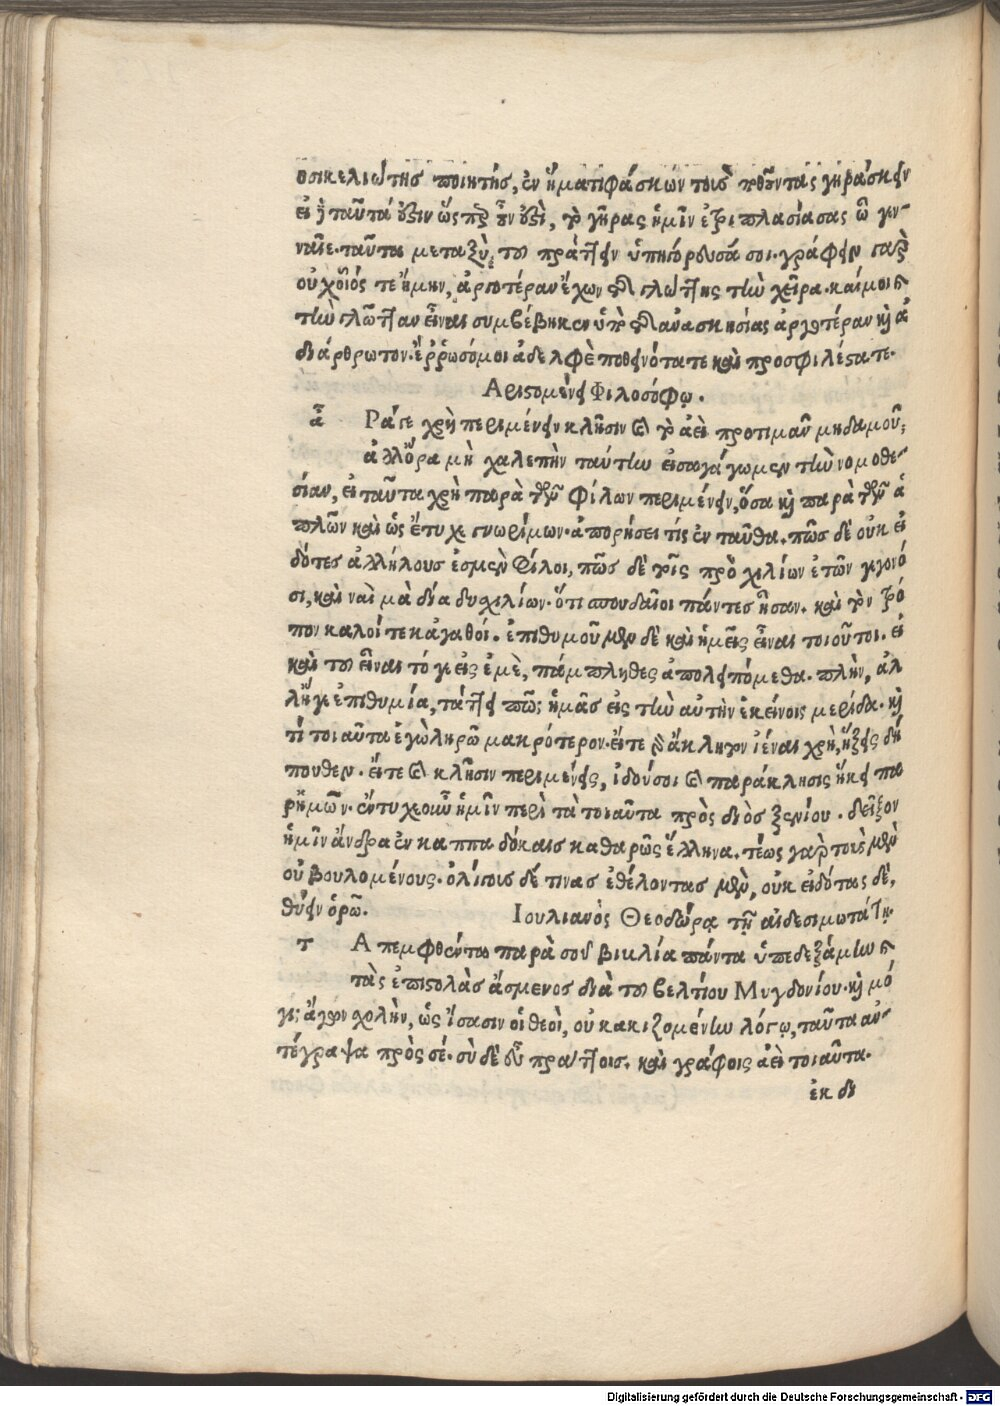 ὁ σικελιώτης ποιητής, ἐν ἤματι φάσκων τοὺς ποθοῦντας γηράσκειν
εἰ δὴ ταῦτά ἐστιν ὥσπερ οὖν ἐστὶ, τὸ γῆρας ἡμῖν ἐτριπλασίασας ὦ γεν-
ναῖε. ταῦτα μεταξὺ τοῦ πράττειν ὑπηγόρευσά σοι. γράφειν γὰρ
οὐχ οἷός τε ἤμην, ἀργοτέραν ἔχων τῆς γλώττης τὴν χεῖρα. καί μοι καὶ
τὴν γλῶτταν εἶναι συμβέβηκεν ὑπὸ τῆς ἀνασκησίας ἀργοτέραν καὶ ἀ
διάρθρωτον. ἔρρωσό μοι ἀδελφὲ ποθεινότατε καὶ προσφιλέστατε.
Αριστομένει Φιλοσόφῳ.
ἆ Ρά γε χρὴ περιμένειν κλῆσιν καὶ τὸ ἀεὶ προτιμᾶν μηδαμοῦ;
ἀλλ' ὅρα μὴ χαλεπὴν ταύτην εἰσαγάγωμεν τὴν νομοθε-
σίαν, εἰ ταῦτα χρὴ παρὰ τῶν φίλων περιμένειν, ὅσα καὶ παρὰ τῶν ἁ
πλῶν καὶ ὡς ἔτυχε γνωρίμων. ἀπορήσει τίς ἐν ταῦθα. πῶς δὲ οὐκ εἰ
δότες ἀλλήλους ἐσμὲν φίλοι, πῶς δὲ τοῖς πρὸ χιλίων ἐτῶν γεγονό
σι, καὶ ναὶ μὰ δία δυχιλίων. ὅτι σπουδαῖοι πάντες ἦσαν. καὶ τὸν τρό
πον καλοί τε κἀγαθοί. ἐπιθυμοῦμεν δὲ καὶ ἡμεῖς εἶναι τοιοῦτοι. εἰ
καὶ τοῦ εἶναι τό γε εἰς ἐμὲ, πάμπληθες ἀπολειπόμεθα. πλὴν, ἀλ
λ' ἥ γε ἐπιθυμία, τάττει πως ἡμᾶς εἰς τὴν αὐτὴν ἐκείνοις μερίδα. καὶ
τί τοι αῦτα ἐγὼ ληρῶ μακρότερον. εἴτε γὰρ ἄκλητον ἰέναι χρὴ, ἥξεις δή
πουθεν. εἴτε καὶ κλῆσιν περιμένεις, ἰδού σοι καὶ παράκλησις ἥκει πα
ρ' ἡμῶν. ἐντυχε οὖν ἡμῖν περὶ τὰ τοιαῦτα πρὸς διὸς ξενίου. δεῖξον
ἡμῖν ἄνδρα ἐν καππαδόκαις καθαρῶς ἕλληνα. τέως γὰρ τοὺς μὲν
οὐ βουλομένους. ὀλίγους δέ τινας ἐθέλοντας μὲν, οὐκ εἰδότας δὲ,
θύειν ὁρῶ. Ιουλιανὸς Θεοδώρᾳ τῇ αἰδεσιμωτάτῃ.
τ Α πεμφθέντα παρὰ σοῦ βιβλία πάντα ὑπεδεξάμην καὶ
τὰς ἐπιστολὰς ἄσμενος διὰ τοῦ βελτίου Μυγδονίου. καὶ μό
γις ἄγων χολὴν, ὡς ἴσασιν οἱ θεοὶ, οὐκ ἀκκιζομένῳ λόγῳ, ταῦτα ἀν-
τέγραψα πρὸς σέ. σὺ δὲ εὖ πράττοις. καὶ γράφοις ἀεὶ τοιαῦτα.
ἐκ δι
Digitalisierung gefördert durch die Deutsche Forschungsgemeinschaft - DFG